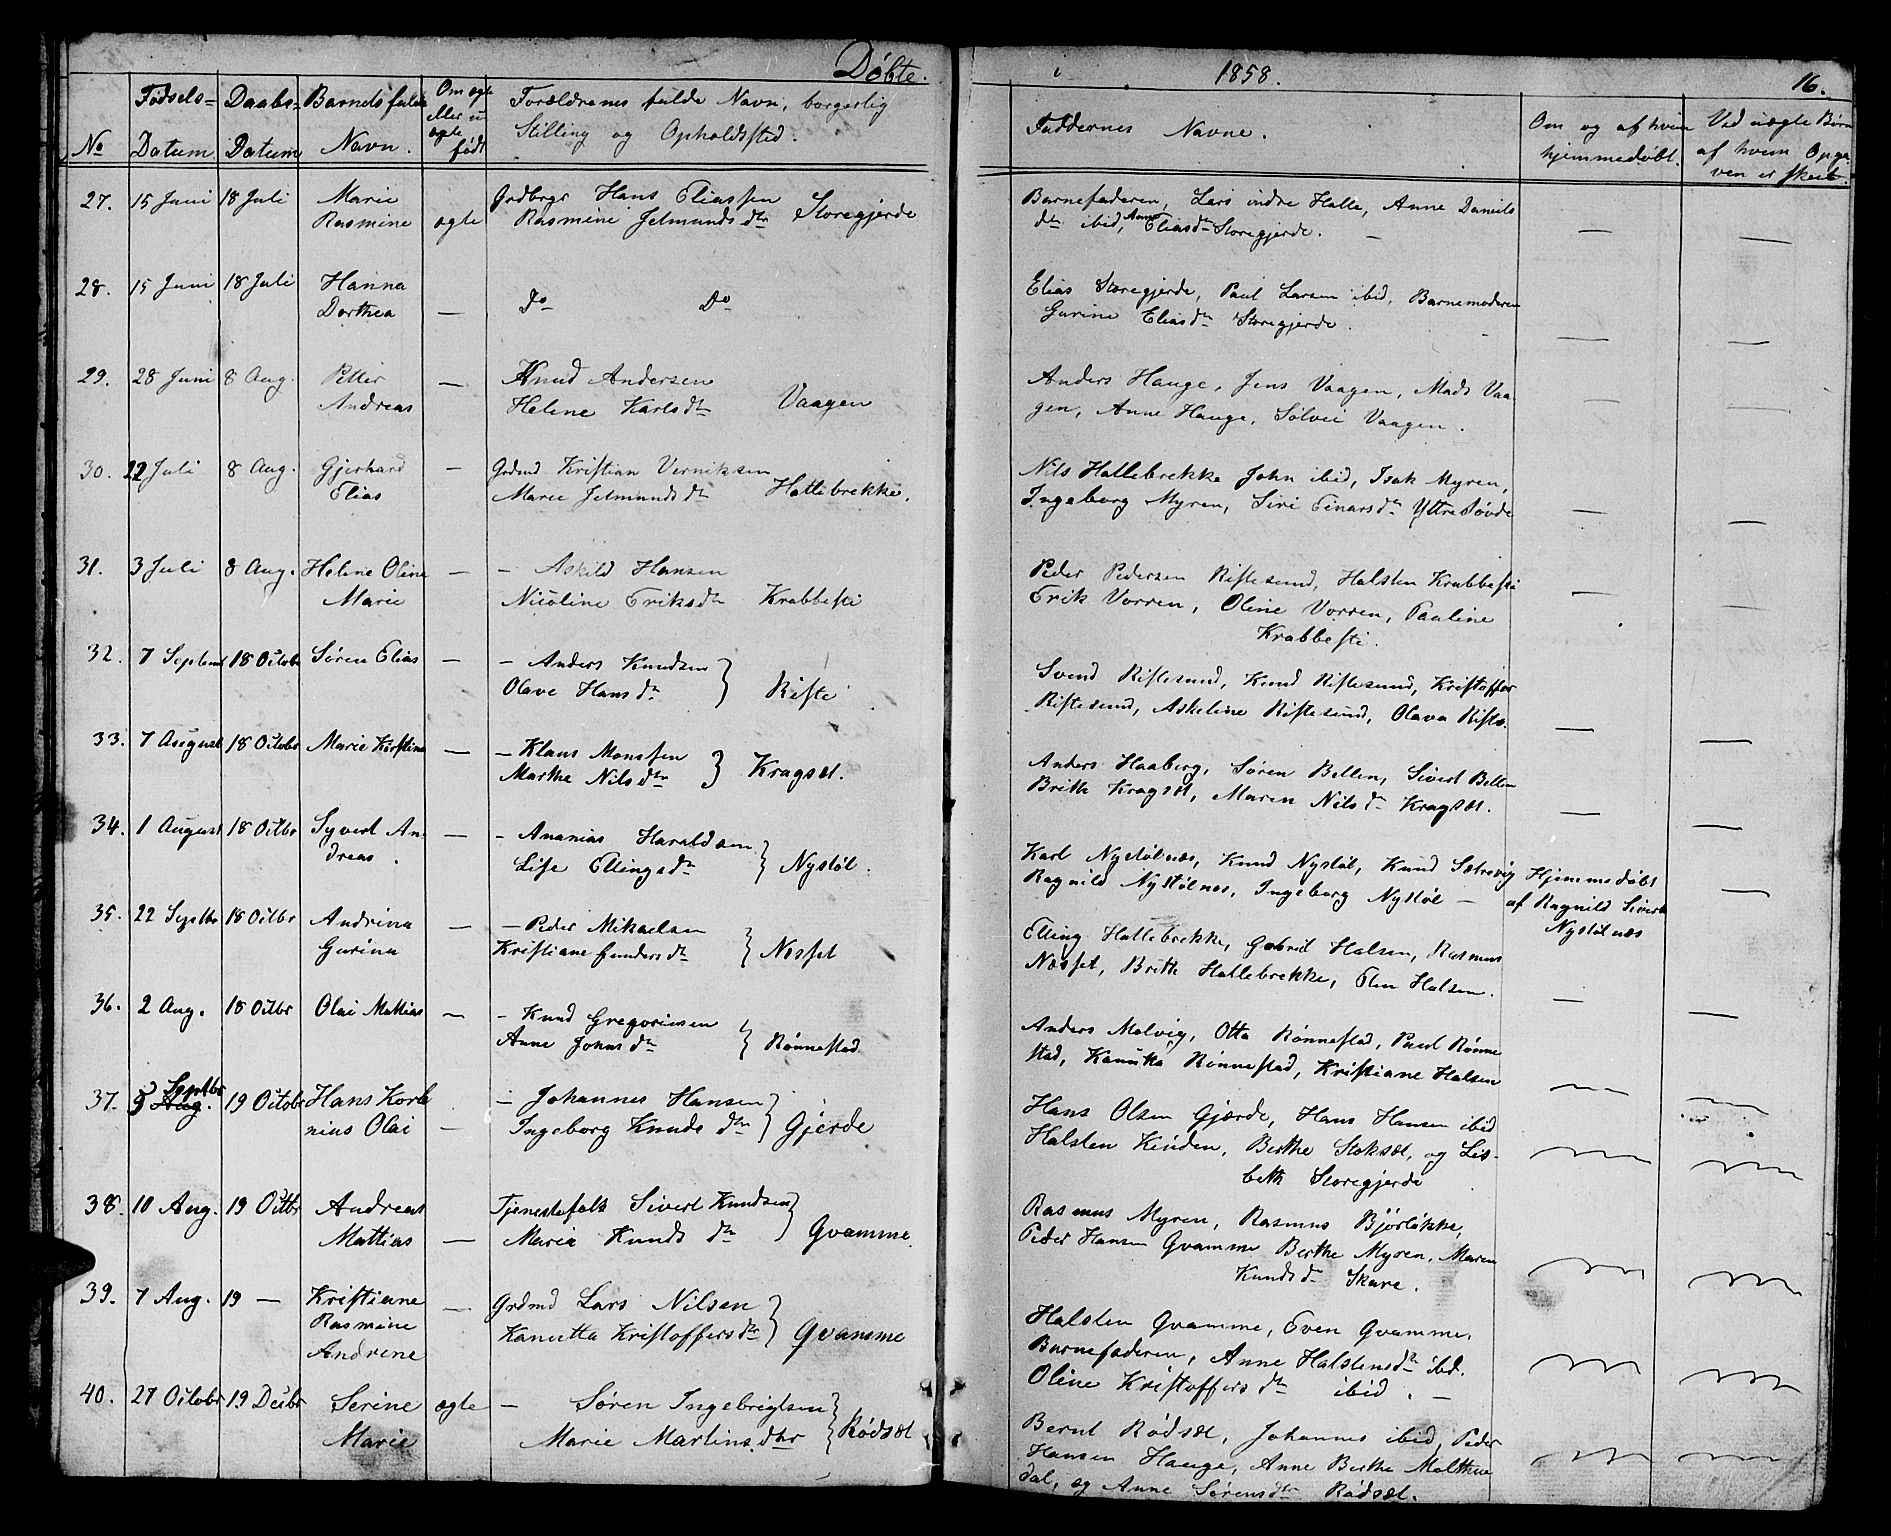 Døbte.
i 1858. 16.
No Fødsels- Datum Daabs- Datum Barnets fulde Navn. Om ægte eller uægte født Forældrenes fulde Navn, borgerlig Stilling og Opholdssted.
Faddernes Navne. Om og af hvem hjemmedøbt. Ved uægte Børn af hvem Opgaven er skeet.
27. 15 Juni 18 Juli Marie Grdbrgr Hans Eliassen
Rasmine ægte Rasmine Jetmundsdtr Storegjerde
Barnefaderen, Lars indre Halle, Anne Daniels
dtr ibid, Anne Eliasdtr Storegjerde. — — —
28. 15 Juni 18 Juli Hanna
Dorthea — Do Do
Elias Storegjerde, Paul Larsen ibid, Barnemoderen
Gurine Eliasdtr Storegjerde. — —
29. 28 Juni 8 Aug. Petter — Knud Andersen
Andreas Helene Karlsdtr Vaagen
Anders Hauge, Jens Vaagen, Mads Vaa-
gen, Anne Hauge, Sølvei Vaagen. — —
30. 22 Juli 8 Aug. Gjerhard — Grdmd Kristian Verniksen
Elias Marie Jetmundsdtr Hattebrekke.
Nils Hallebrekke John ibid, Isak Myren,
Ingeborg Myren, Siri Einarsdtr Yttre Søvde — —
31. 3 Juli 8 Aug. Helene Oline — — Askild Hansen
Marie Nicoline Eriksdtr Krabbesti
Peder Pedersen Riftesund, Halsten Krabbesti
Erik Vorren, Oline Vorren, Pauline
Krabbesti. — —
32. 7 Septembr 18 Octobr Søren Elias — — Anders Knudsen
Olave Hansdtr Rifte
Svend Riftesund, Knud Riftesund, Kristoffer
Riftesund, Askeline Riftesund, Olava Rifte. — —
33. 7 August 18 Octobr Marie Kirstine — — Klaus Monssen
Marthe Nilsdtr Kragsæt.
Anders Haaberg, Søren Bellen, Sivert Bellen
Brithe Kragsæt, Maren Nilsdtr Kragsæt. — —
34. 1 August 18 Octbr Syvert An- — — Ananias Haraldsen
dreas. Lise Ellingsdtr Nystøl.
Karl Nystølnæs, Knud Nystøl, Knud Sætrevig Hjemmedøbt
Ragnild Nystølnes, Ingeborg Nystøl — af Ragnild Siverts —
Nystølnæs
35. 22 Septbr 18 Octbr Andrina — — Peder Mikaelsen
Gurina Kristiane Gundersdtr Nesset
Elling Hallebrekke, Gabriel Halsen, Rasmus
Næsset, Brithe Hallebrekke, Elen Halsen. — —
36. 2 Aug. 18 Octbr Olai Mattias — — Knud Gregoriusen
Anne Johnsdtr Rønnestad
Anders Malvig, Otta Rønnestad, Paul Rønne
stad, Kanutta Rønnestad, Kristiane Halsen — —
37. 5 Aug. Septbr 19 Octobr Hans Korne — Johannes Hansen
nius Olai — Ingeborg Knudsdtr Gjerde
Hans Olsen Gjærde, Hans Hansen ibid
Halsten Keiden, Berthe Stoksæt, og Lis-
beth Storegjerde
38. 10 Aug. 19 Octbr Andreas Tjenestefolk Sivert Knudsen
Mattias — Maria Knudsdtr Gvamme
Rasmus Myren, Rasmus Bjørløkke,
Peder Hansen Gvamme Berthe Myren, Maren
Knudsdtr Skare.
39. 7 Aug. 19 — Kristiane — Grdmd Lars Nilsen
Rasmine Kanutta Kristoffersdtr Gvamme
Andrine
Halsten Gvamme, Even Gvamme,
Barnefaderen, Anne Halstensdtr ibd.
Oline Kristoffersdtr ibid. —
40. 27 Octobr 19 Decbr Serine ægte — Søren Ingebrigtsen
Marie Marie Martinsdtr Rødsæt
Bernt Rødsæt, Johannes ibid, Peder
Hansen Hauge, Anne Berthe Malthue
dal, og Anne Sørensdtr Rødsæt.